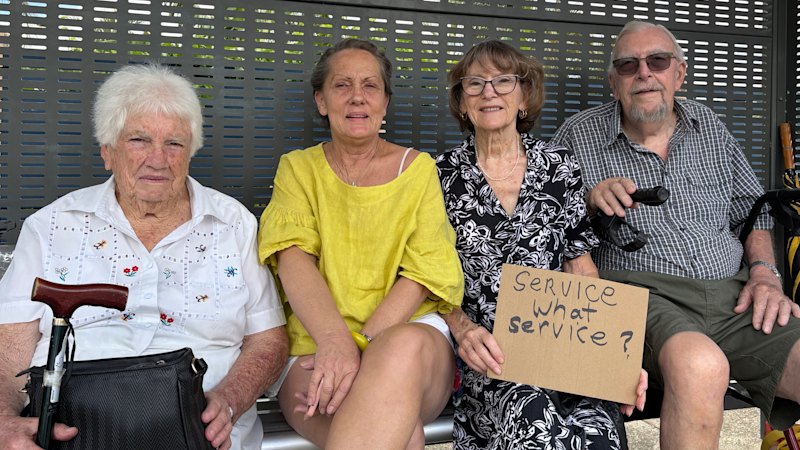 Service
What
service?